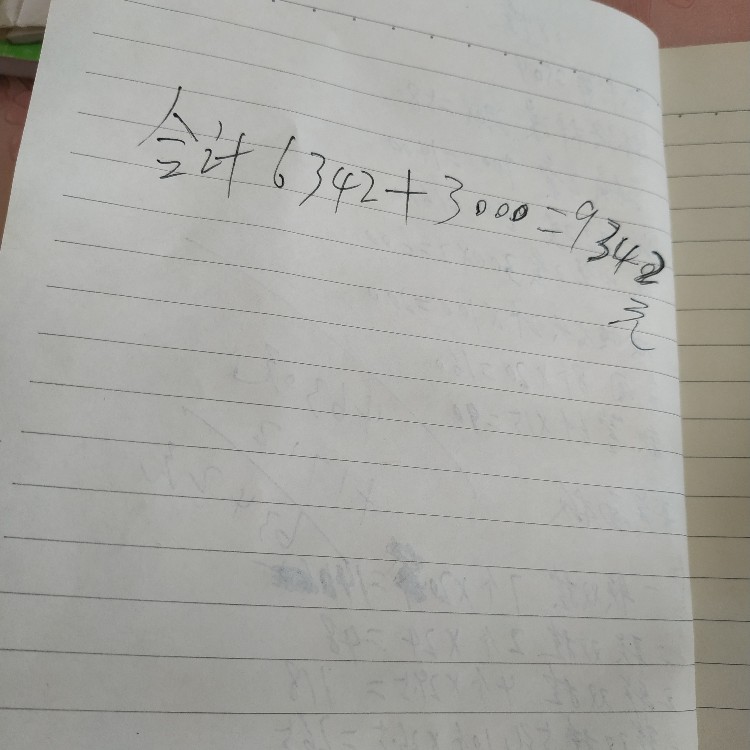 合计 6342+3000=9342
元